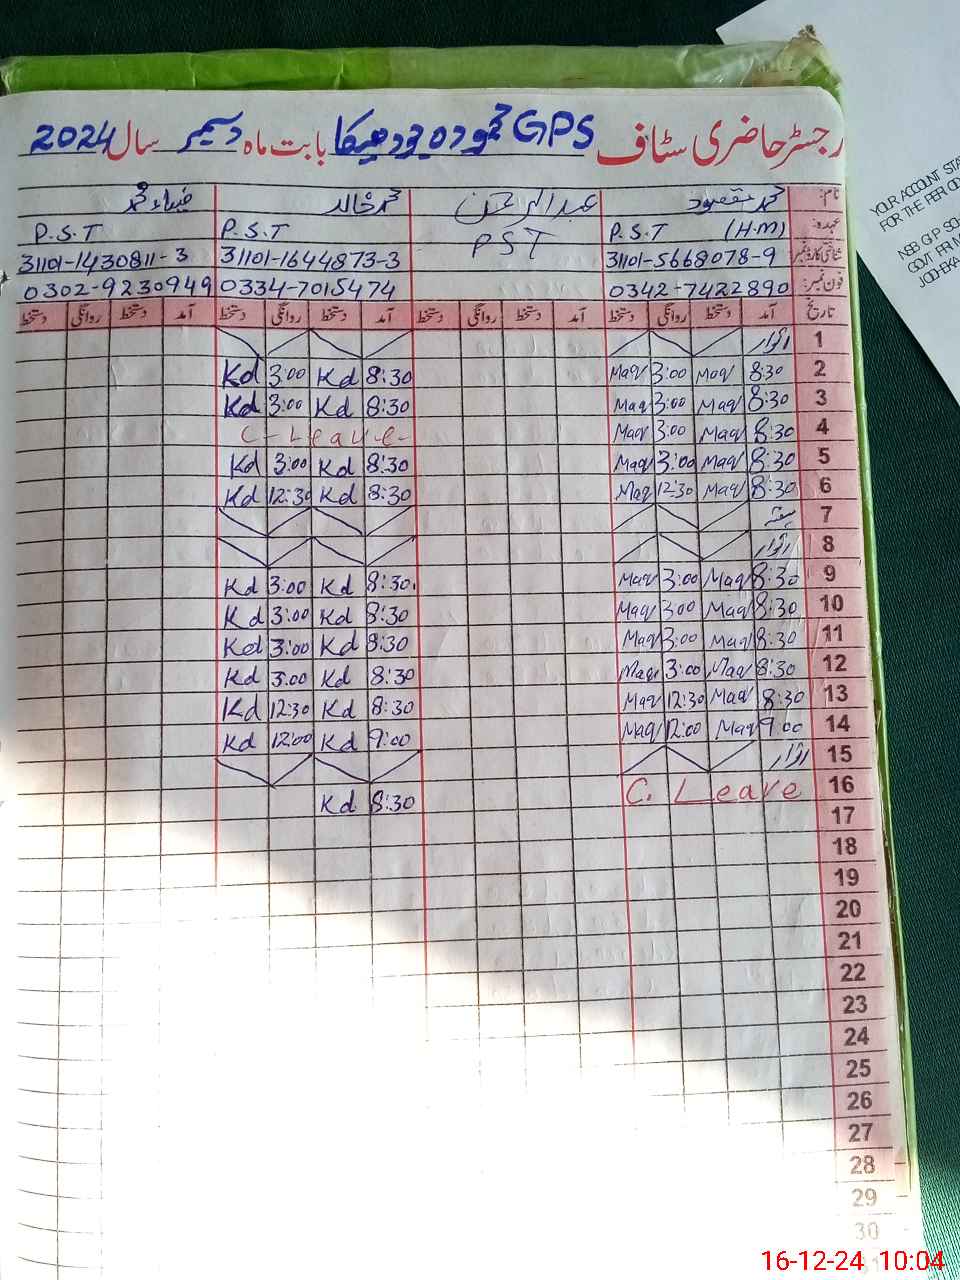 رجسٹر حاضری سٹاف GPS بابت ماہ دسمبر سال 2024
نام: محمد مقصود عبدالرحمن محمد خالد ضیاء محمد
عہدہ: P.S.T (H.M) PST P.S.T P.S.T
شناختی کارڈ نمبر 31101-5668078-9 31101-1644873-3 31101-1430811-3
فون نمبر: 0342-7422890 0334-7015474 0302-9230949
تاریخ آمد دستخط روانگی دستخط آمد دستخط روانگی دستخط آمد دستخط روانگی دستخط آمد دستخط روانگی دستخط
1 اتوار
2 8:30 Maq 3:00 Maq 8:30 Kd 3:00 Kd
3 8:30 Maq 3:00 Maq 8:30 Kd 3:00 Kd
4 8:30 Maq 3:00 Maq C-Leave-
5 8:30 Maq 3:00 Maq 8:30 Kd 3:00 Kd
6 8:30 Maq 12:30 Maq 8:30 Kd 12:30 Kd
7 ہفتہ
8 اتوار
9 8:30 Maq 3:00 Maq 8:30 Kd 3:00 Kd
10 8:30 Maq 3:00 Maq 8:30 Kd 3:00 Kd
11 8:30 Maq 3:00 Maq 8:30 Kd 3:00 Kd
12 8:30 Maq 3:00 Maq 8:30 Kd 3:00 Kd
13 8:30 Maq 12:30 Maq 8:30 Kd 12:30 Kd
14 9:00 Maq 12:00 Maq 9:00 Kd 12:00 Kd
15 اتوار
16 C. Leave 8:30 Kd
17
18
19
20
21
22
23
24
25
26
27
28
29
30
31
YOUR ACCOUNT STA
FOR THE PERI
NSB G.P SC
GOVT PRI M
JODHEKA
16-12-24 10:04